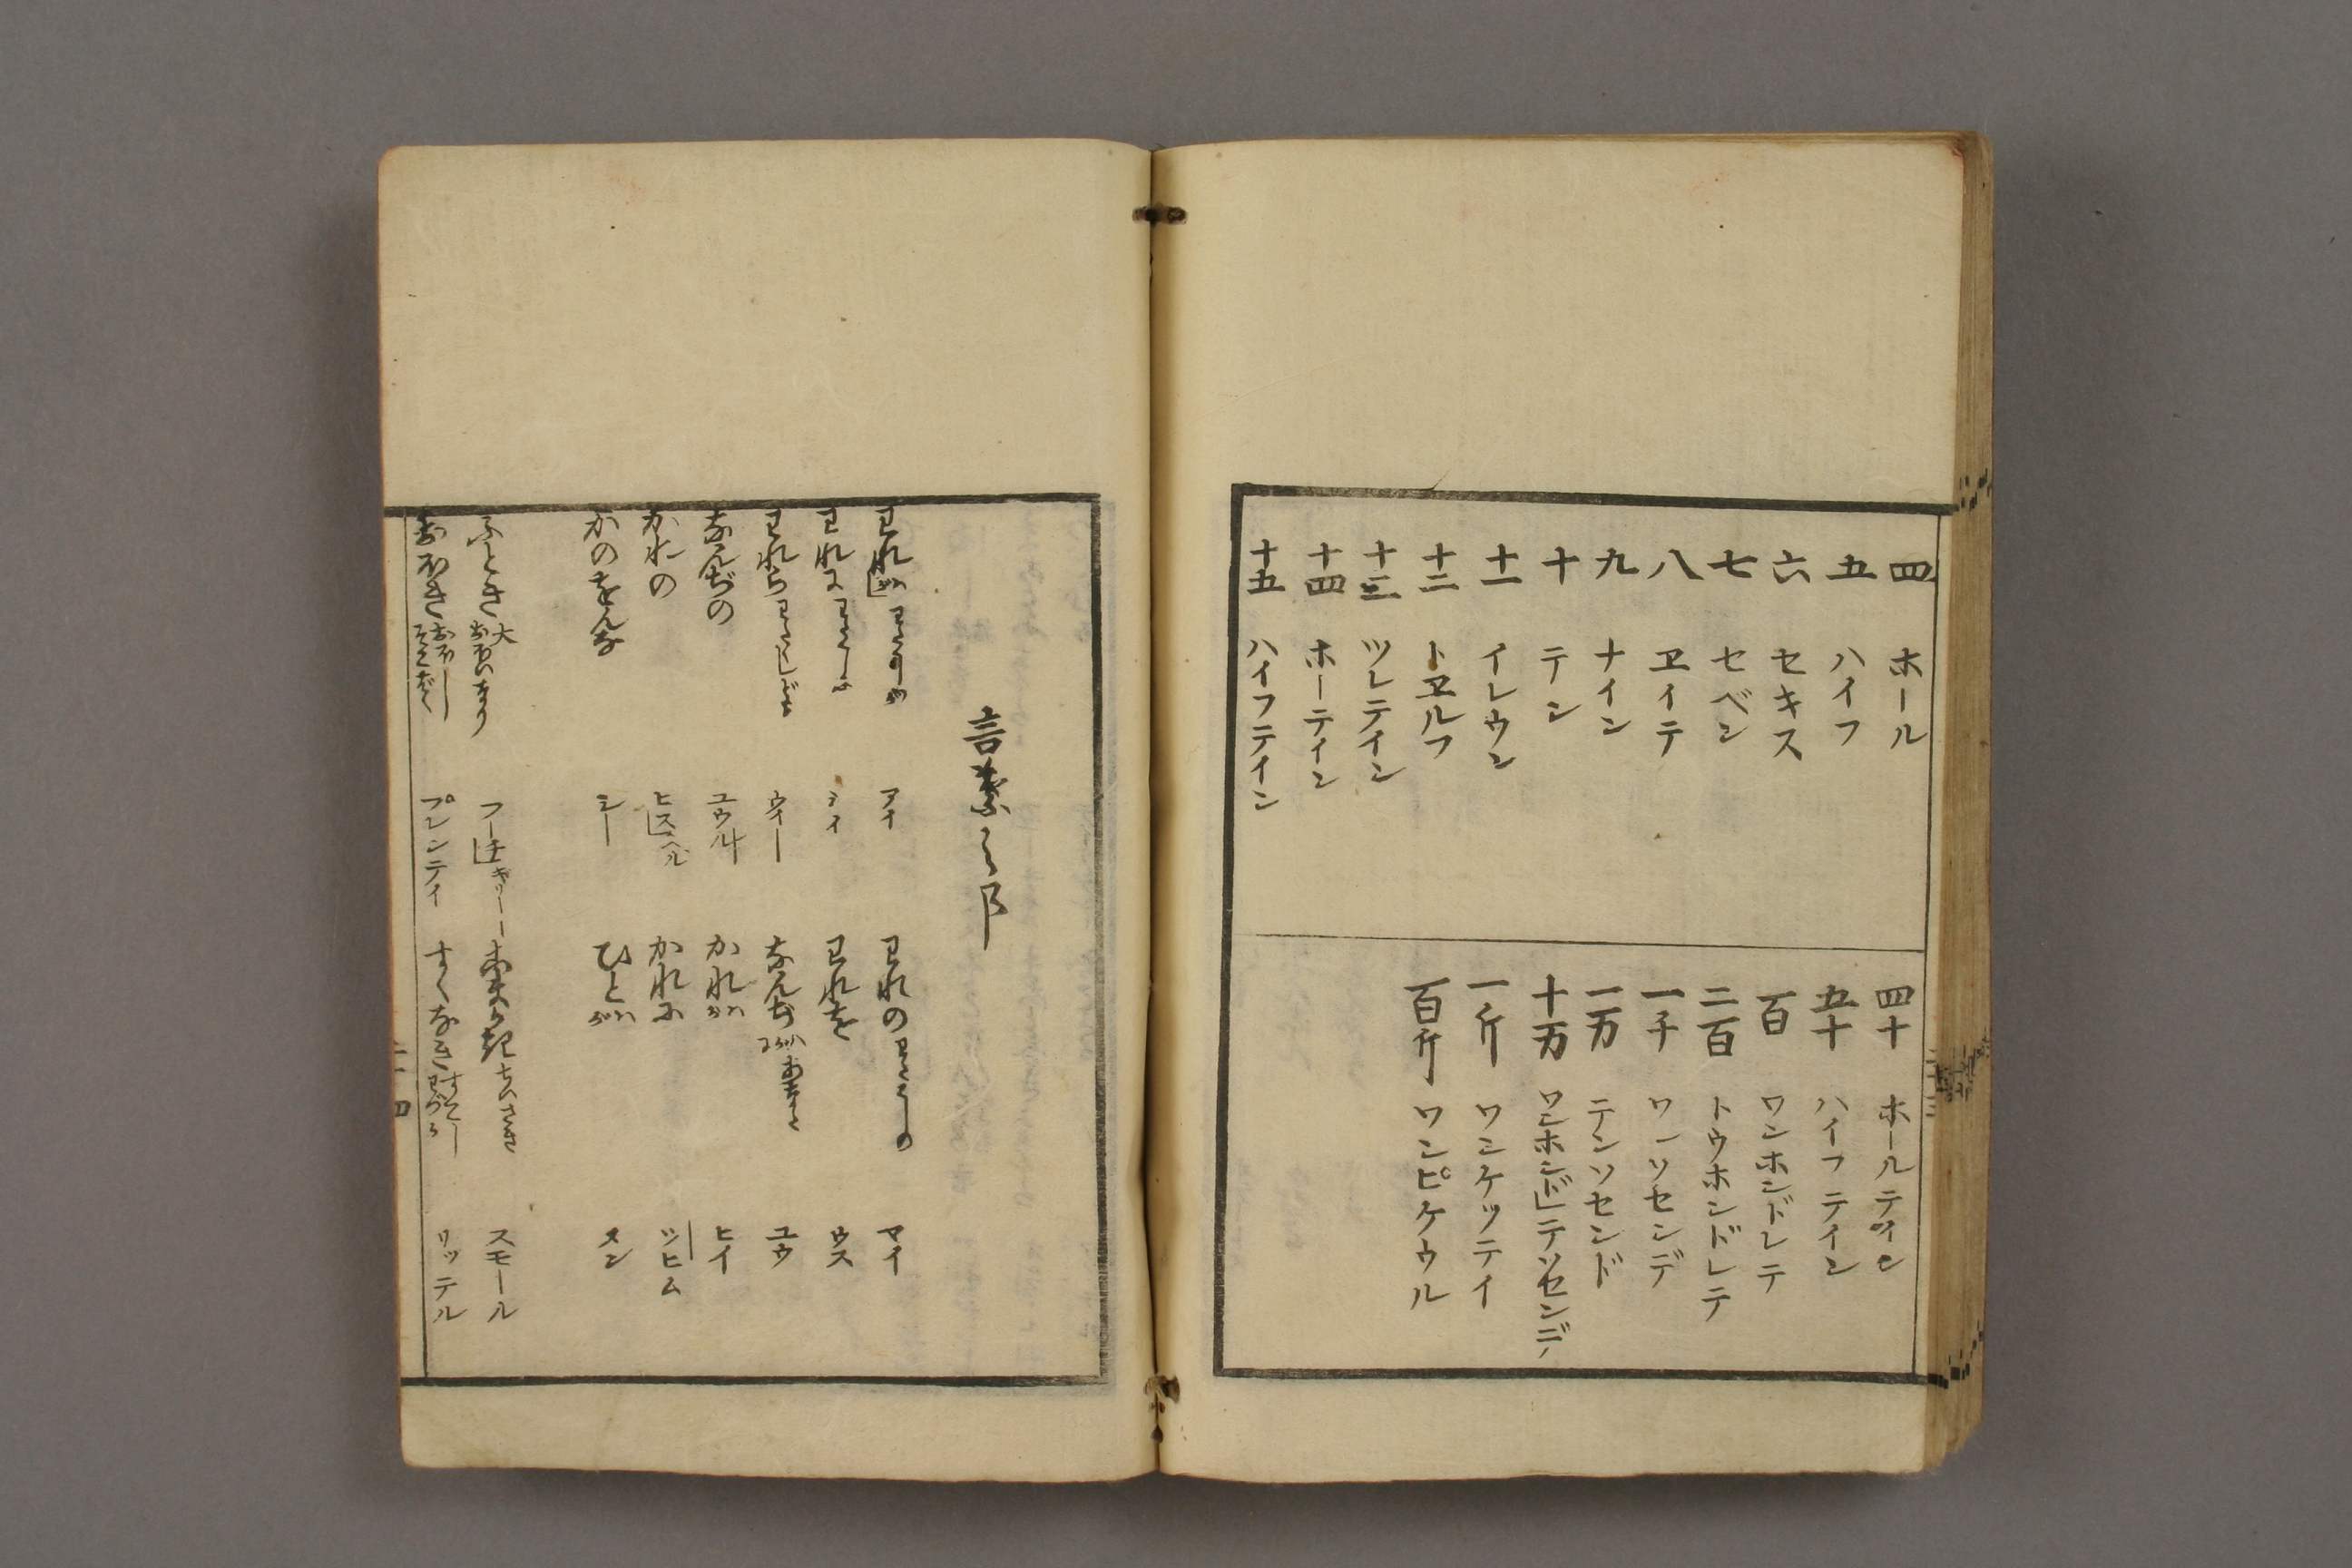 四 ホール
五 ハイフ
六 セキス
七 セベン
八 ヱイテ
九 ナイン
十 テン
十一 イレウン
十二 トヱルフ
十三 ツレテイン
十四 ホーテイン
十五 ハイフテイン
四十 ホールテイン
五十 ハイフテイン
百 ワンホンドレテ
二百 トウホンドレテ
一千 ワンソセンデ
一万 テンソセンド
十万 ワンホンド テソセンデ
一斤 ワンケツテイ
百斤 ワンピケウル
言葉之部
われ アイ
われに ミイ
われら ウイー
なんぢの ユウル
かれの ヒス ヘル
かのをんな シー
ふとき 大 おほいなり フーチ ギリー
おほき おほし プレンテイ
われの わたくしの マイ
われを ウス
なんぢ ユウ
かれ ヒイ
かれに ツヒム
ひと メン
ちいさき スモール
すくなき すこし わづか リツテル
二十四